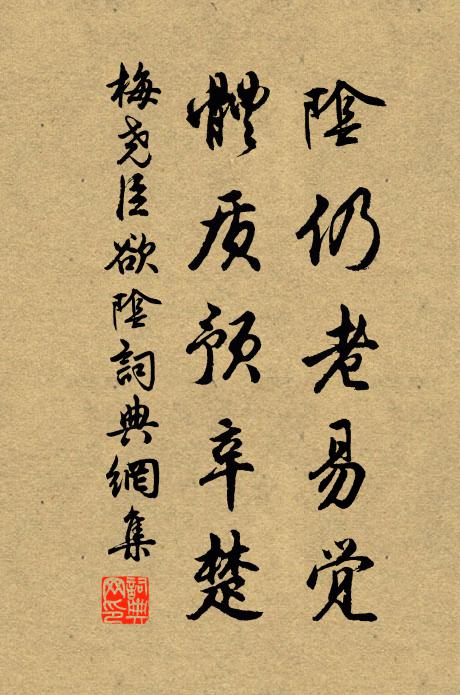 陰仍老易觉
體质预辛楚
梅尧臣欲陰詞典網集
詞典网印